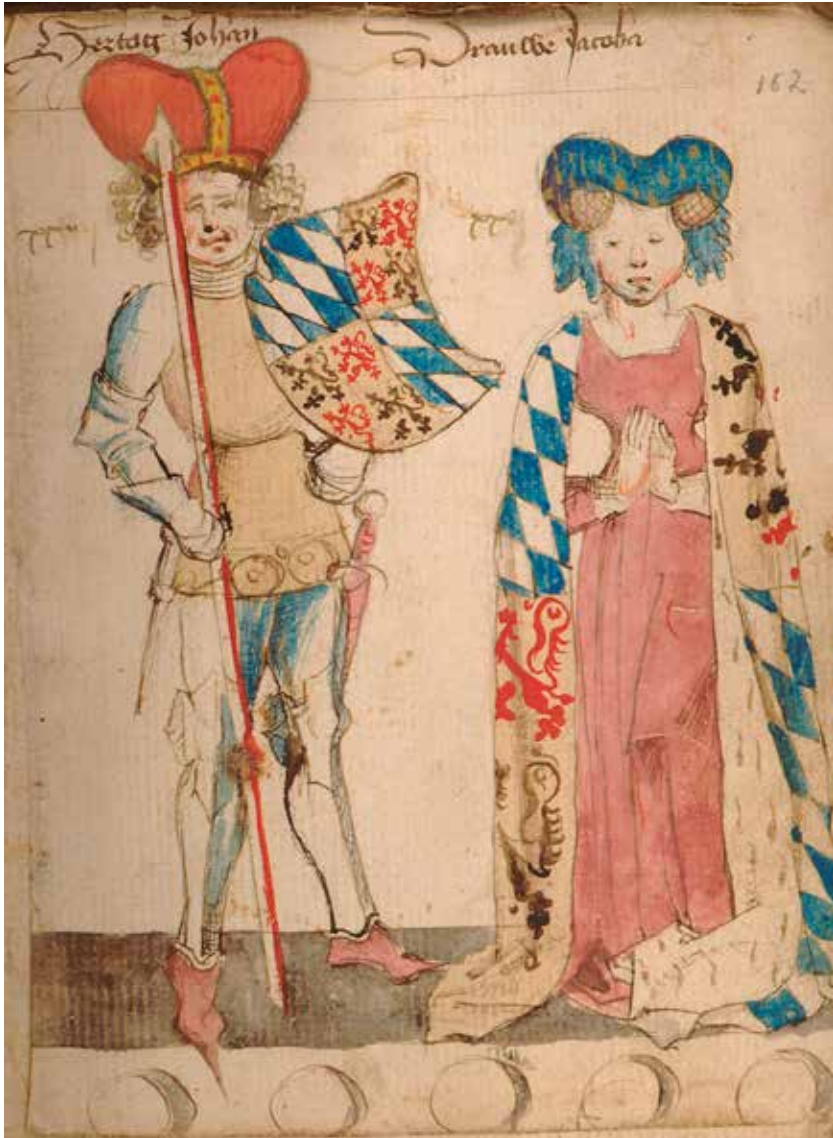 Hertog Johan
Vrauwe Jacoba
162